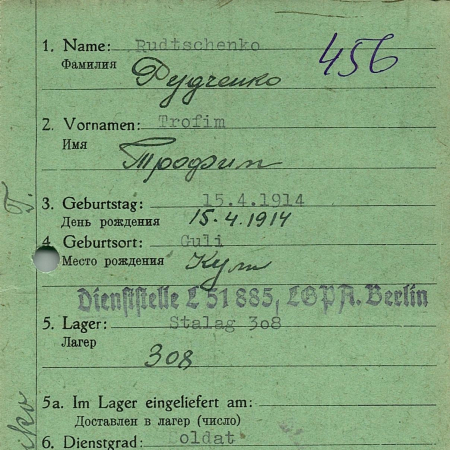 1. Name: Rudtschenko
456
Фамилия
Рудченко
2. Vornamen: Trofim
Имя
Трофим
3. Geburtstag: 15.4.1914
День рождения 15.4.1914
4. Geburtsort: Guli
Место рождения Кули
Dienststelle L 51 885, LGPA. Berlin
5. Lager: Stalag 308
Лагер
308
5a. Im Lager eingeliefert am:
Доставлен в лагер (число)
6. Dienstgrad: oldat